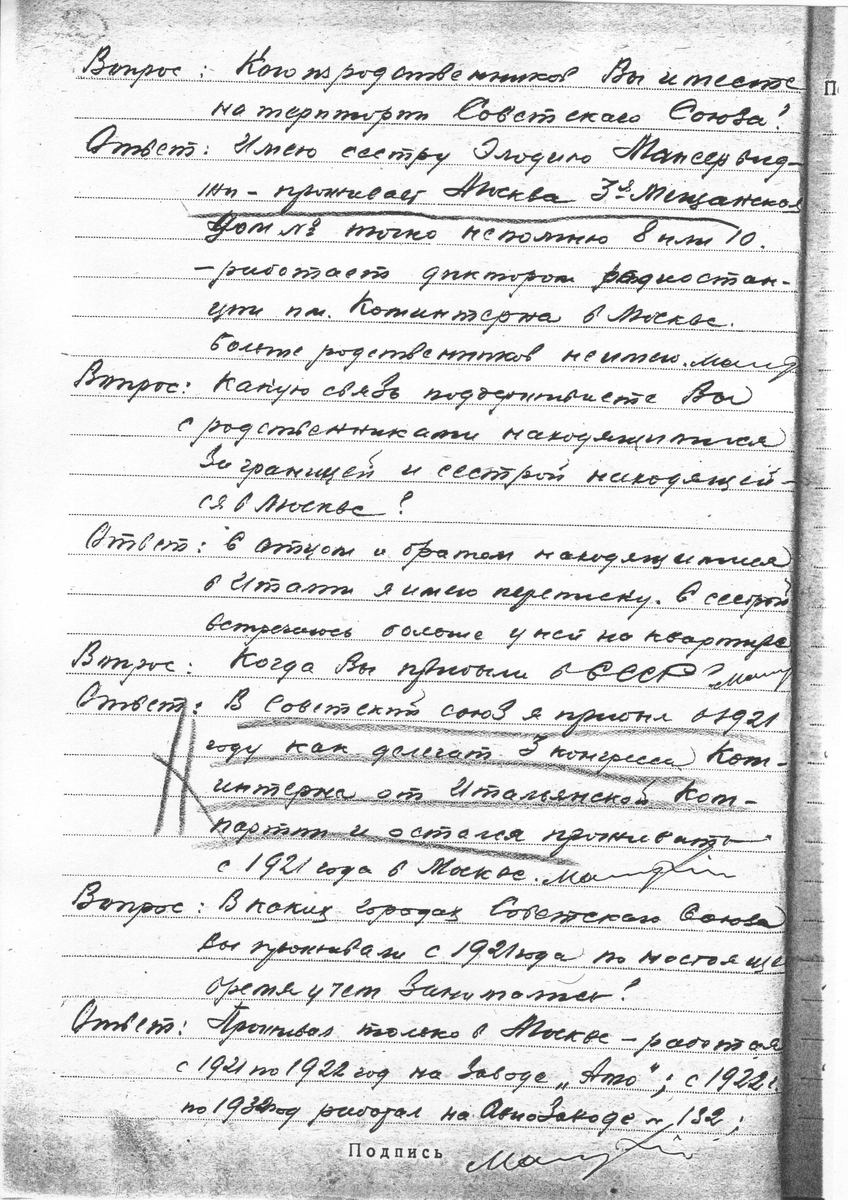 Вопрос: Кого из родственников Вы имеете
на територии Советского Союза?
Ответ: Имею сестру Элодию Мансервид-
жи – проживает Москва 3я Мещанская
дом № точно не помню 8 или 10.
– работает диктором радиостан-
ции им. Коминтерна в Москве.
больше родственников не имею.
Вопрос: Какую связь поддерживаете Вы
с родственниками находящимися
за границей и сестрой находящей-
ся в Москве?
Ответ: С отцом и братом находящимися
в Италии я имею переписку. С сестрой
встречаюсь больше у ней на квартире
Вопрос: Когда Вы прибыли в СССР?
Ответ: В Советский союз я прибыл в 1921
году как делегат 3 конгресса Ком-
интерна от Итальянской Ком-
партии и остался проживать
с 1921 года в Москве.
Вопрос: В каких городах Советского Союза
Вы проживали с 1921 года по настояще
время и чем занимались?
Ответ: Проживал только в Москве – работая
с 1921 по 1922 год на Заводе „Амо"; с 1922 г.
по 1932 год работал на АвиоЗаводе № 132;
Подпись